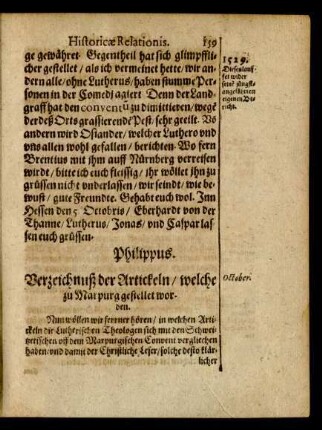 Historicæ Relationis. 159
ge gewähret. Gegentheil hat sich glimpffli-
cher gestellet / als ich vermeinet hette / wir an-
dern alle / ohne Lutherus / haben stumme Per-
sonen in der Comedj agiert. Denn der Land-
graff hat den conventū zu dimittieren / wegē
der deß Orts grassierende Pest / sehr geeilt. Vs
andern wird Osiander / welcher Luthero vnd
vns allen wohl gefallen / berichten. Wo fern
Brentius mit ihm auff Nürnberg verreisen
wirdt / bitte ich euch fleissig / ihr wöllet ihn zu
grüssen nicht vnderlassen / wir seindt / wie be-
wust / gute Freundte. Gehabt euch wol. Inn
Hessen den 5 Octobris / Eberhardt von der
Thanne / Lutherus / Jonas / vnd Caspar las-
sen euch grüssen.
Philippus.
Verzeichnuß der Artickeln / welche
zu Marpurg gestellet wor-
den.
Nun wöllen wir ferrner hören / in welchen Arti-
ckeln die Lutherischen Theologen sich mit den Schwei-
tzerischen vff dem Marpurgischen Convent verglichen
haben / vnd damit der Christliche Leser / solche desto klär-
licher
1529.
wider
October.